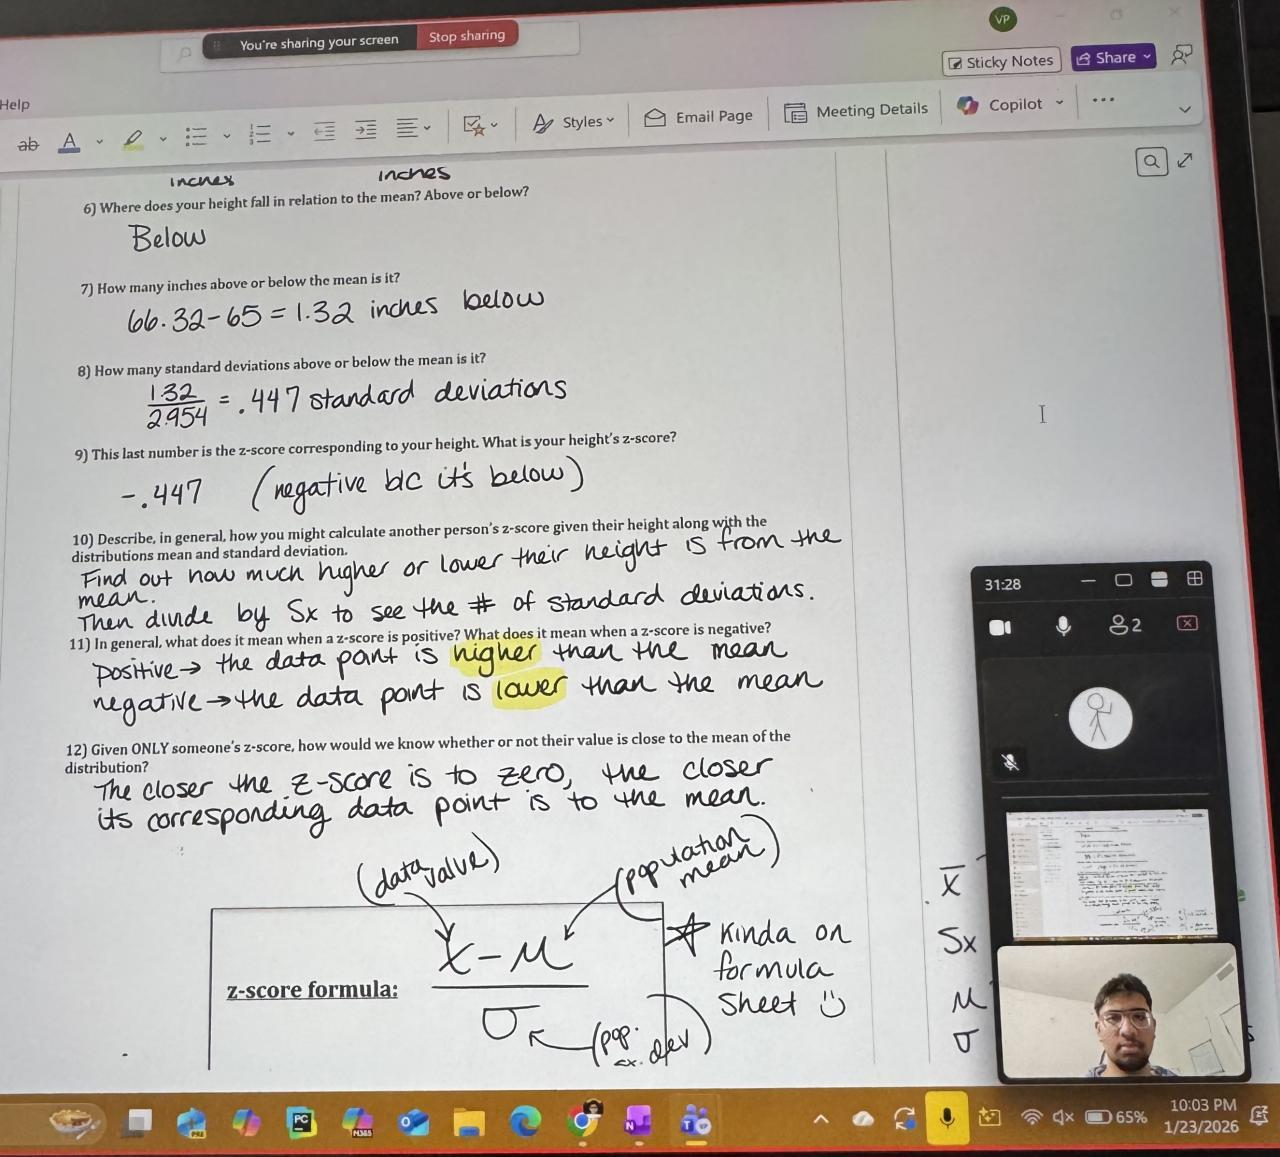 You're sharing your screen Stop sharing
VP
Sticky Notes Share
Help
ab A Styles Email Page Meeting Details Copilot ...
inches inches
6) Where does your height fall in relation to the mean? Above or below?
Below
7) How many inches above or below the mean is it?
66.32-65 = 1.32 inches below
8) How many standard deviations above or below the mean is it?
1.32
2.954 = .447 standard deviations
9) This last number is the z-score corresponding to your height. What is your height's z-score?
-.447 (negative b/c it's below)
10) Describe, in general, how you might calculate another person's z-score given their height along with the
distributions mean and standard deviation.
Find out how much higher or lower their height is from the
mean.
Then divide by Sx to see the # of standard deviations.
11) In general, what does it mean when a z-score is positive? What does it mean when a z-score is negative?
Positive → the data point is higher than the mean
negative → the data point is lower than the mean
12) Given ONLY someone's z-score, how would we know whether or not their value is close to the mean of the
distribution?
The closer the z-score is to zero, the closer
its corresponding data point is to the mean.
(data value) (population mean)
z-score formula: x-μ
σ
(pop. dev)
☆ Kinda on
formula
sheet
x̄
Sx
μ
σ
31:28
2
PRE PC M365 N T VP
65%
10:03 PM
1/23/2026